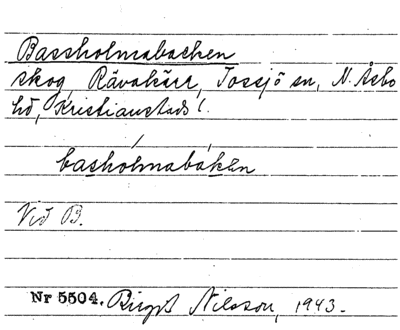 Bassholmabacken
skog, Rävakärr, Tossjö sn, N. Åsbo
hd, Kristianstads l.
basholmabákən
Vid B.
Nr 5504. Birgit Nilsson, 1943.